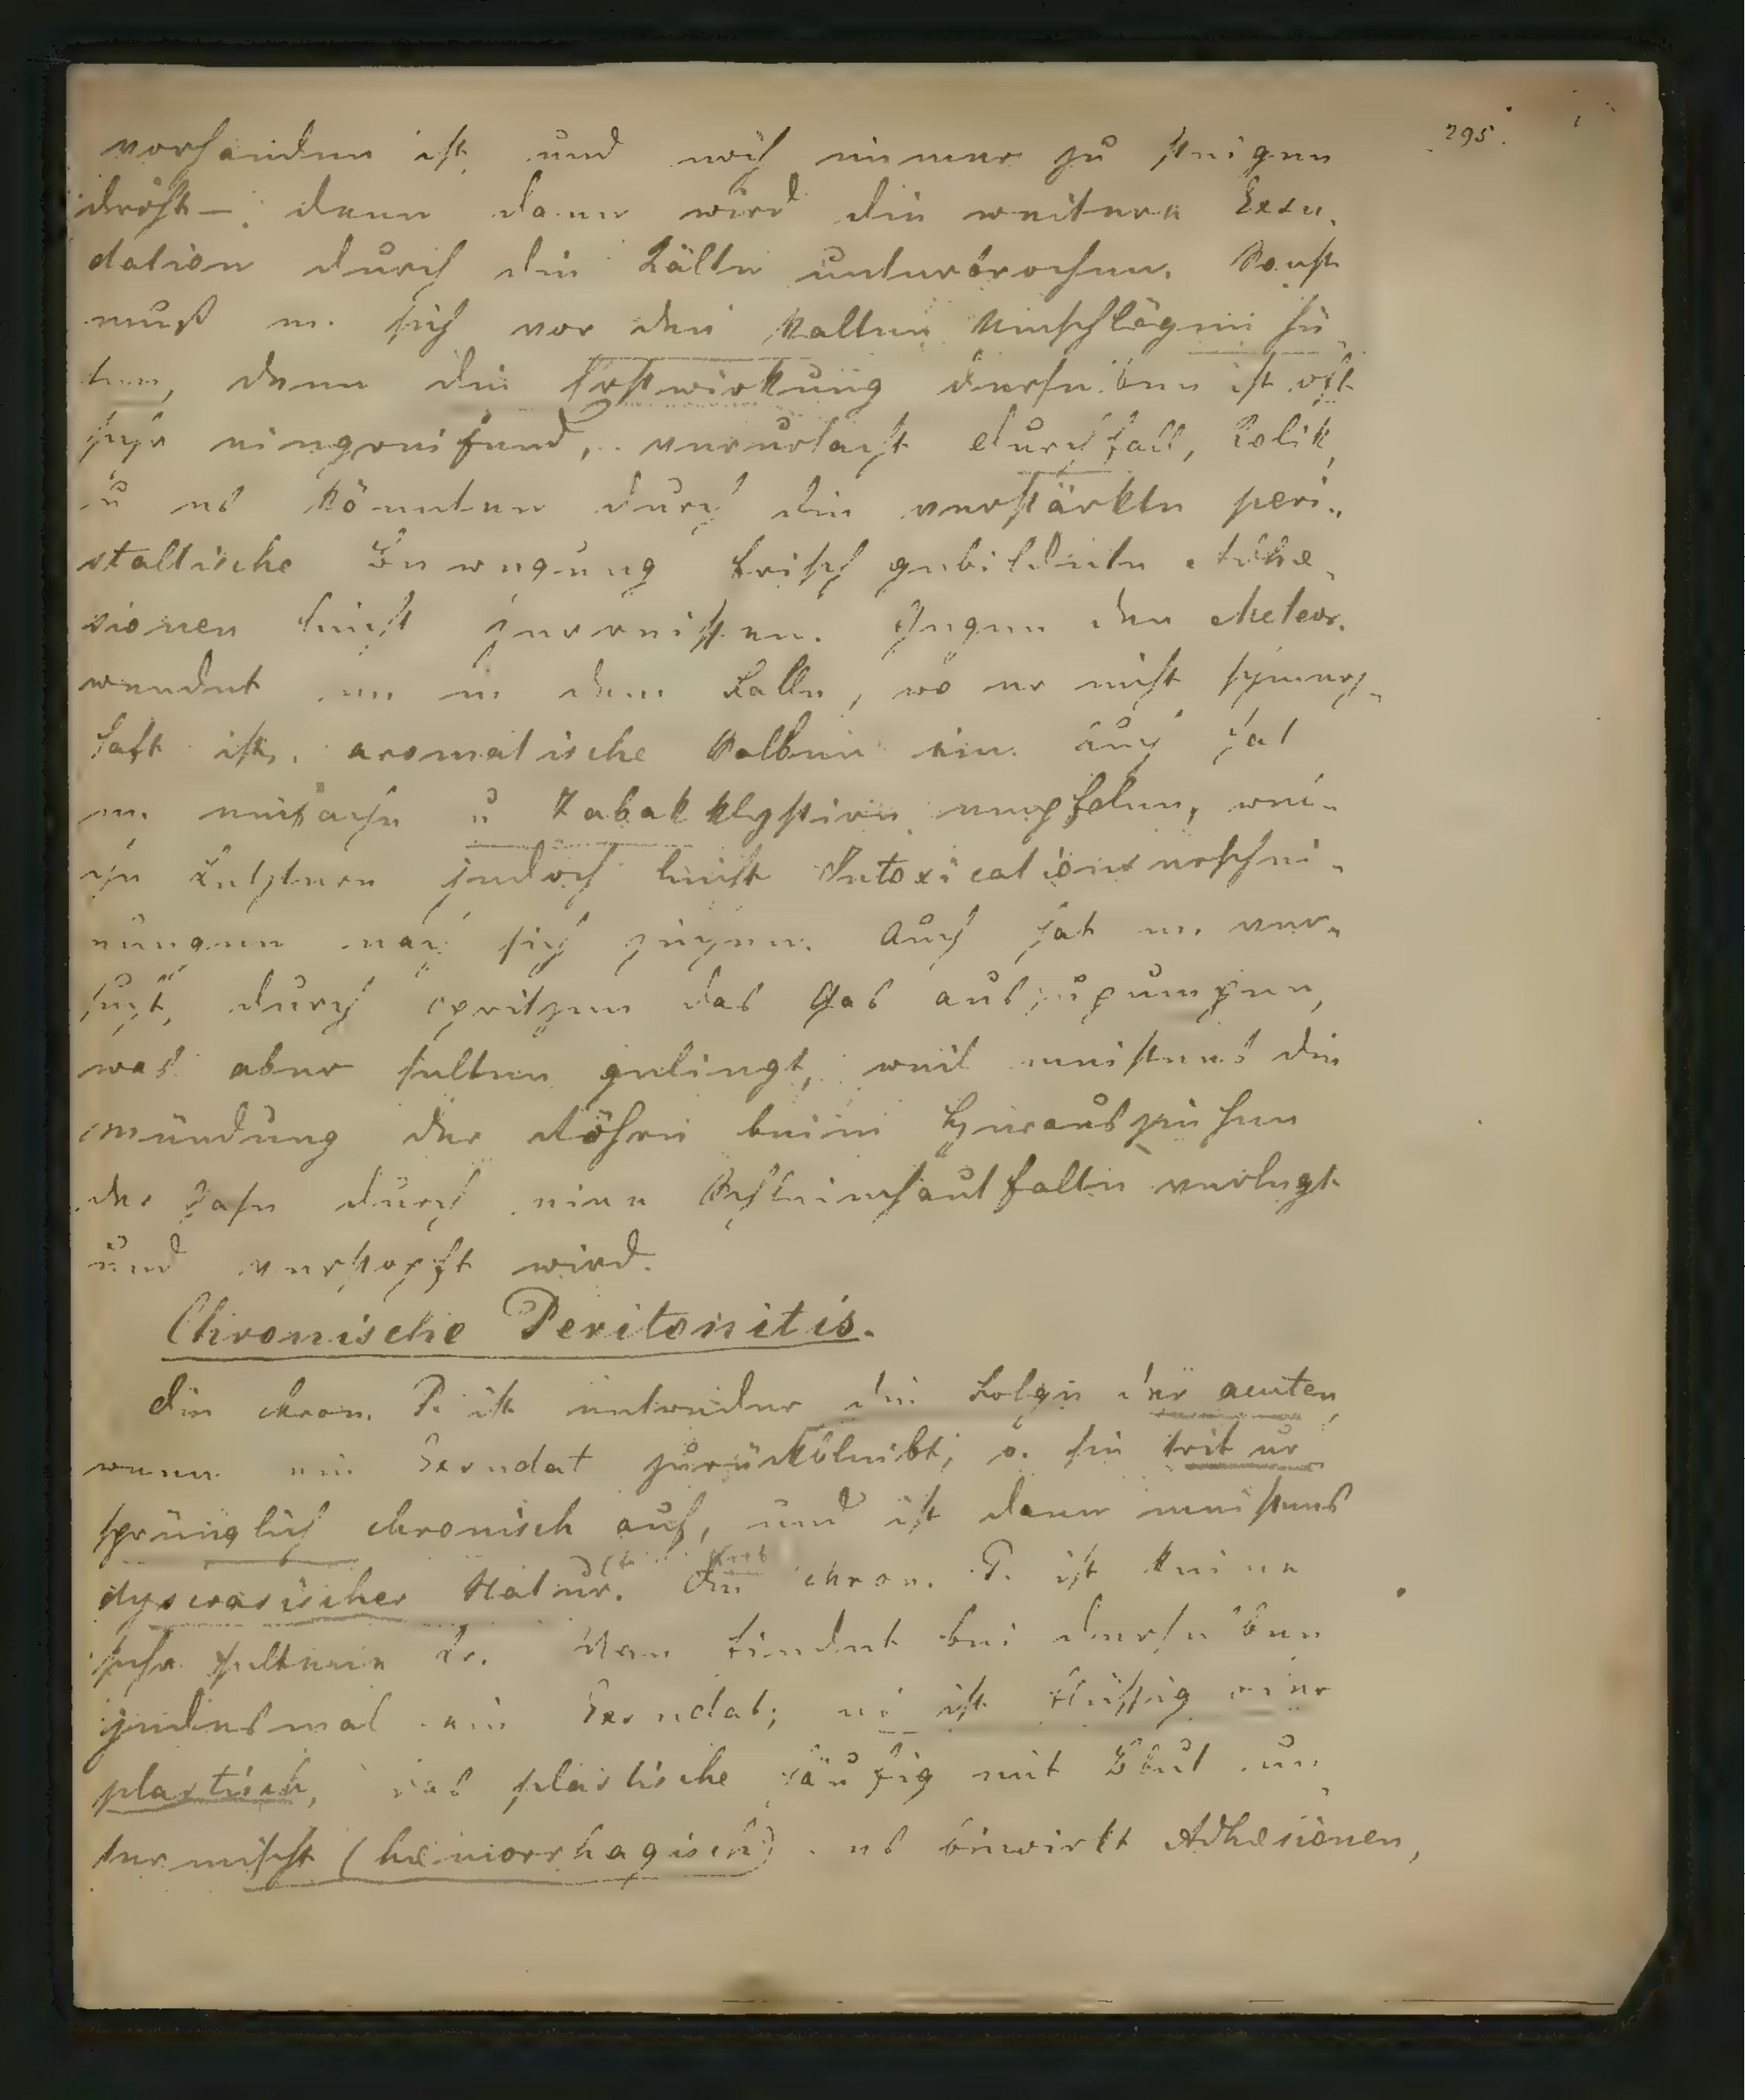 295.
vorhanden ist und noch immer zu steigen
droht — denn dann wird die weitere Exsu-
dation durch die Kälte unterbrochen. Sonst
muß m. sich vor den kalten Umschlägen hü-
ten, denn die Erstwirkung derselben ist oft
sehr eingreifend, verursacht Durchfall, Kolik,
u es könnten durch die verstärkte peri-
staltische Bewegung frisch gebildete Adhæ-
sionen leicht zerreissen. Gegen den Meteor.
wendet m in dem Falle, wo er nicht schmerz-
haft ist, aromatische Salben ein. auch hat
m. einfache u Tabakklystire empfolen, wel-
che Letztere jedoch leicht Intoxicationserschei-
nungen nach sich ziehen. Auch hat m. ver-
sucht, durch spritzen das Gas auszupumpen,
was aber selten gelingt, weil meistens die
Mündung der Röhre beim Herausziehen
der Gase durch eine Schleimhautfalte verlegt
und verstopft wird.
Chronische Peritonitis.
Die chron. P. ist entweder die Folge der acuten,
wenn ein Exsudat zurückbleibt, o. sie trit ur
sprünglich chronisch auf, und ist dann meistens
dyscrasischer Natur. Die chron. P. ist keine
sehr seltene Kr. Man findet bei derselben
jedesmal ein Exsudat; es ist flüssig oder
plastisch, das plastische häufig mit Blut un-
termischt (hæmorrhagisch). es bewirkt Adhæsionen,